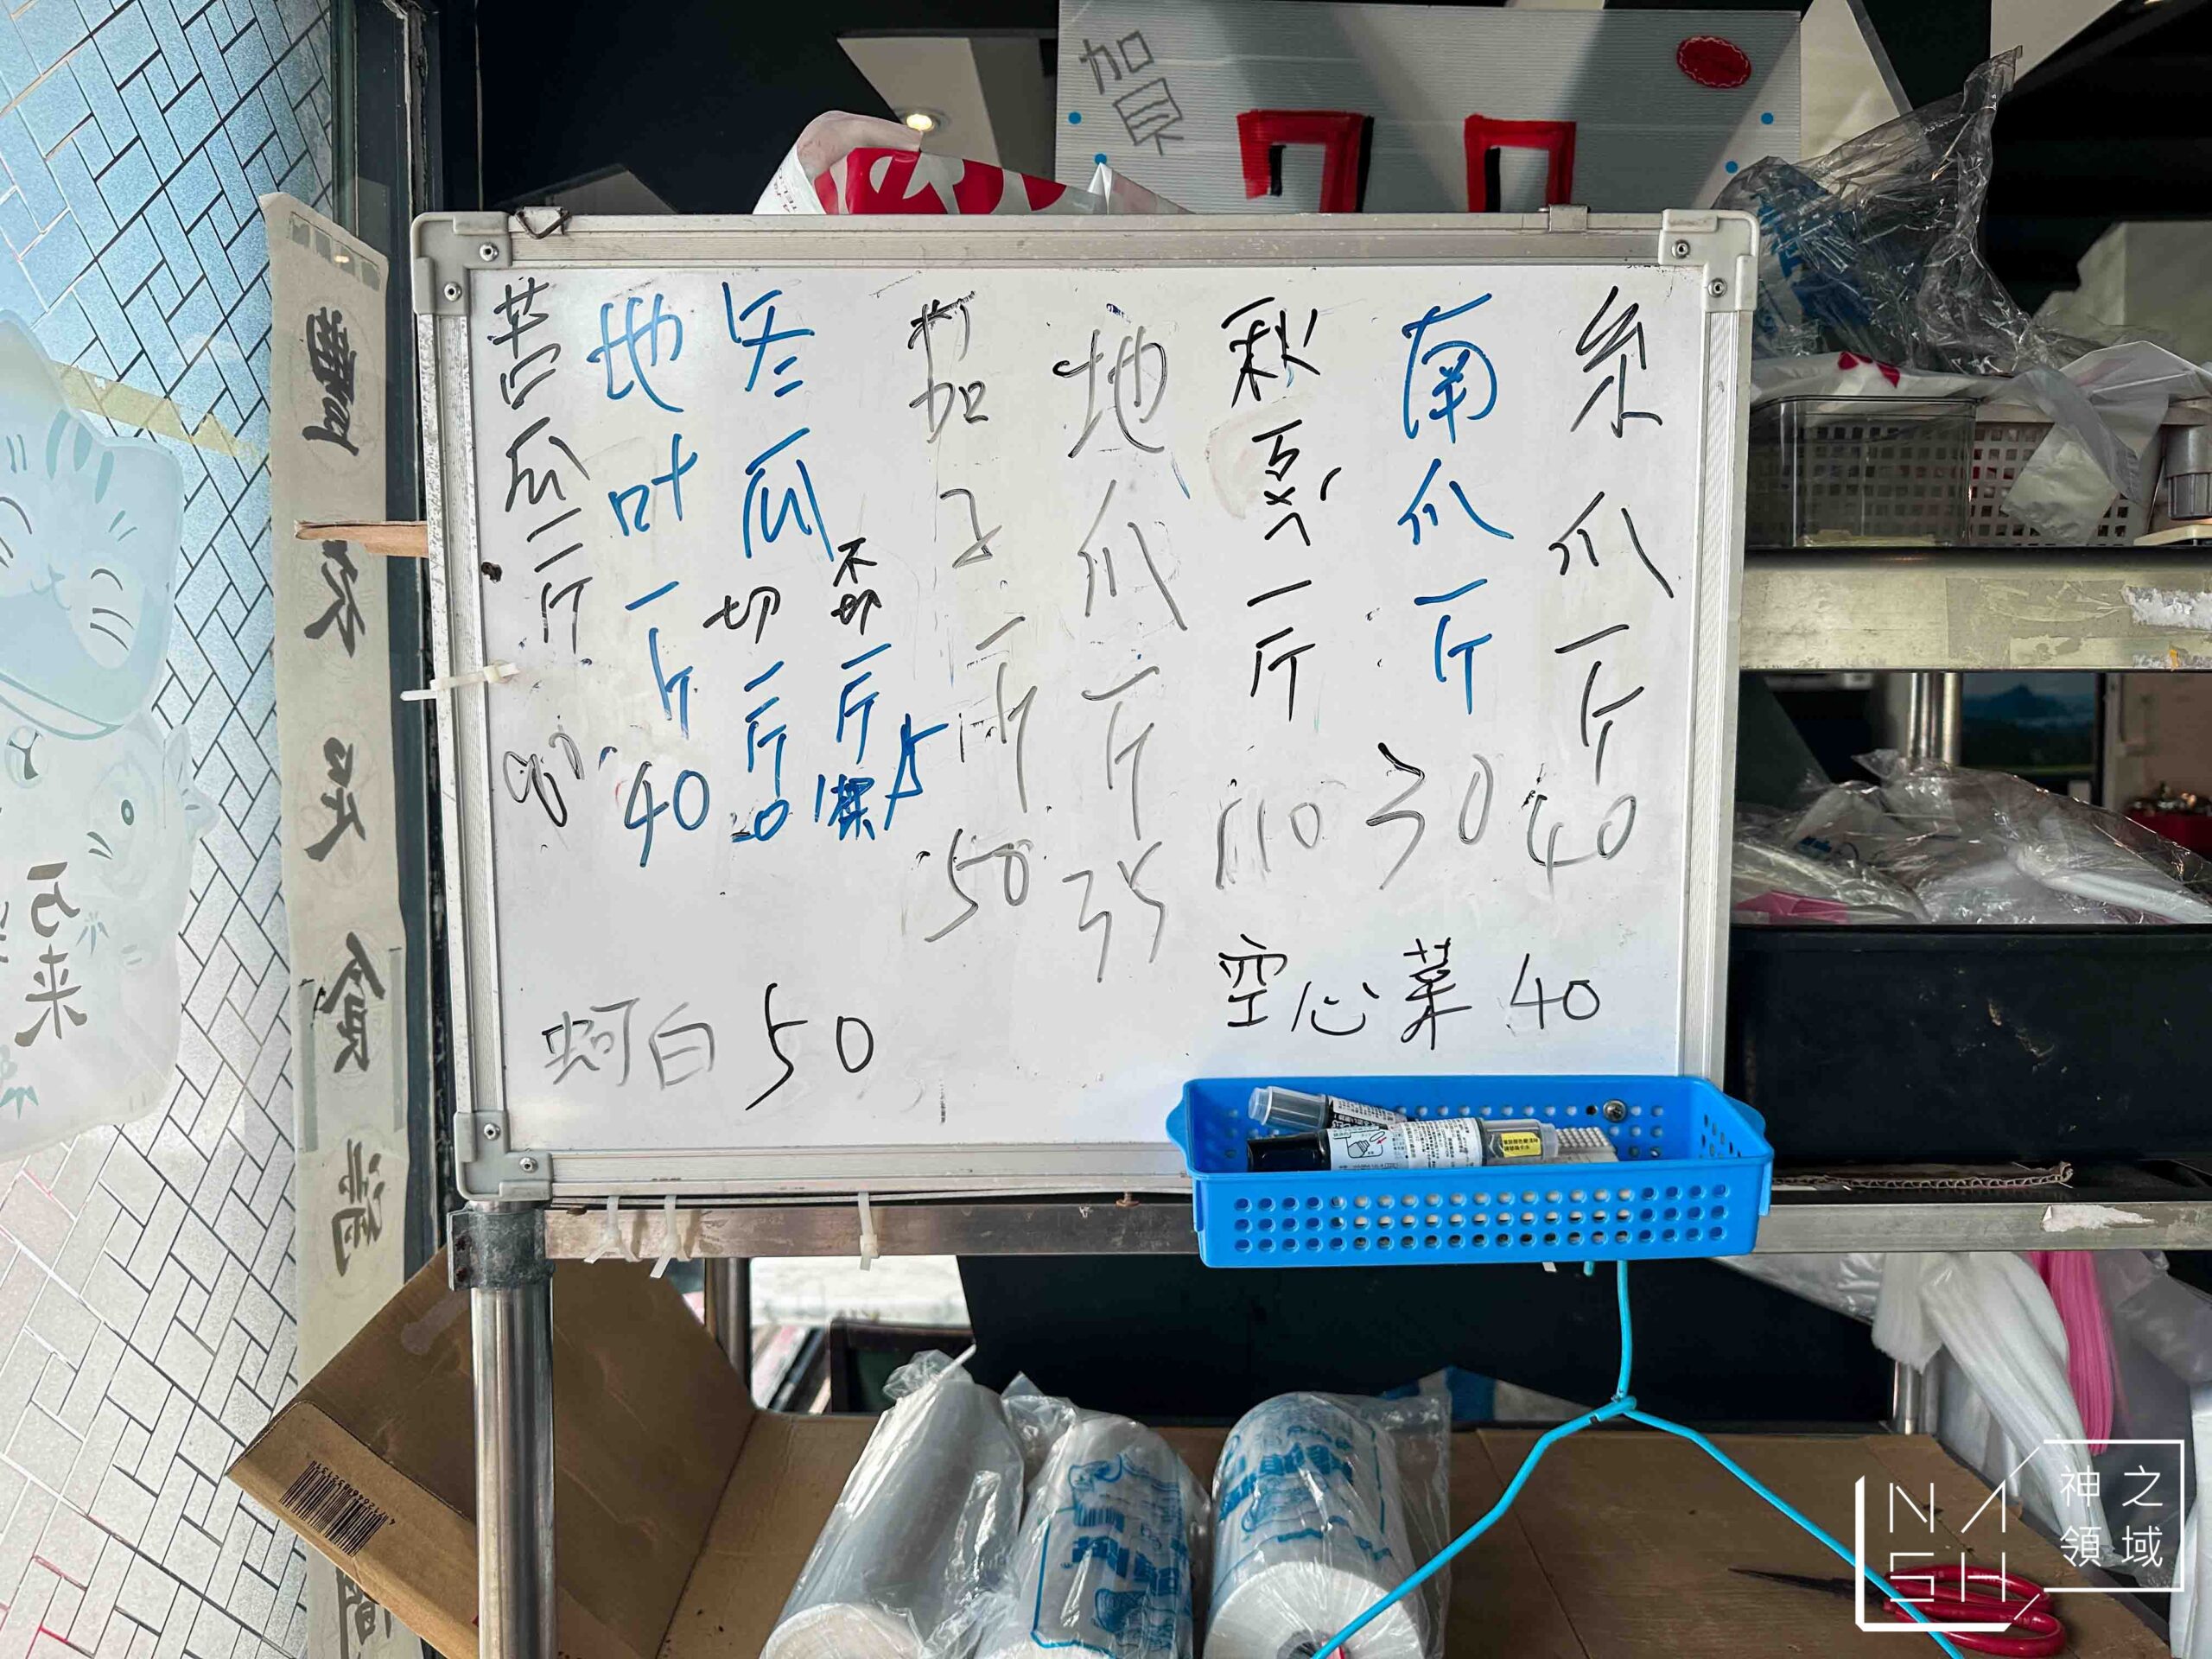 賀
糸瓜一斤40
南瓜一斤30
秋葵一斤110
地瓜一斤35
茄子一斤50
冬瓜
不切一斤
15
切一斤20
地叶一斤40
苦瓜一斤
空心菜 40
蚵白 50
衣
足
食
滿
万
来
NASH
神之
領域